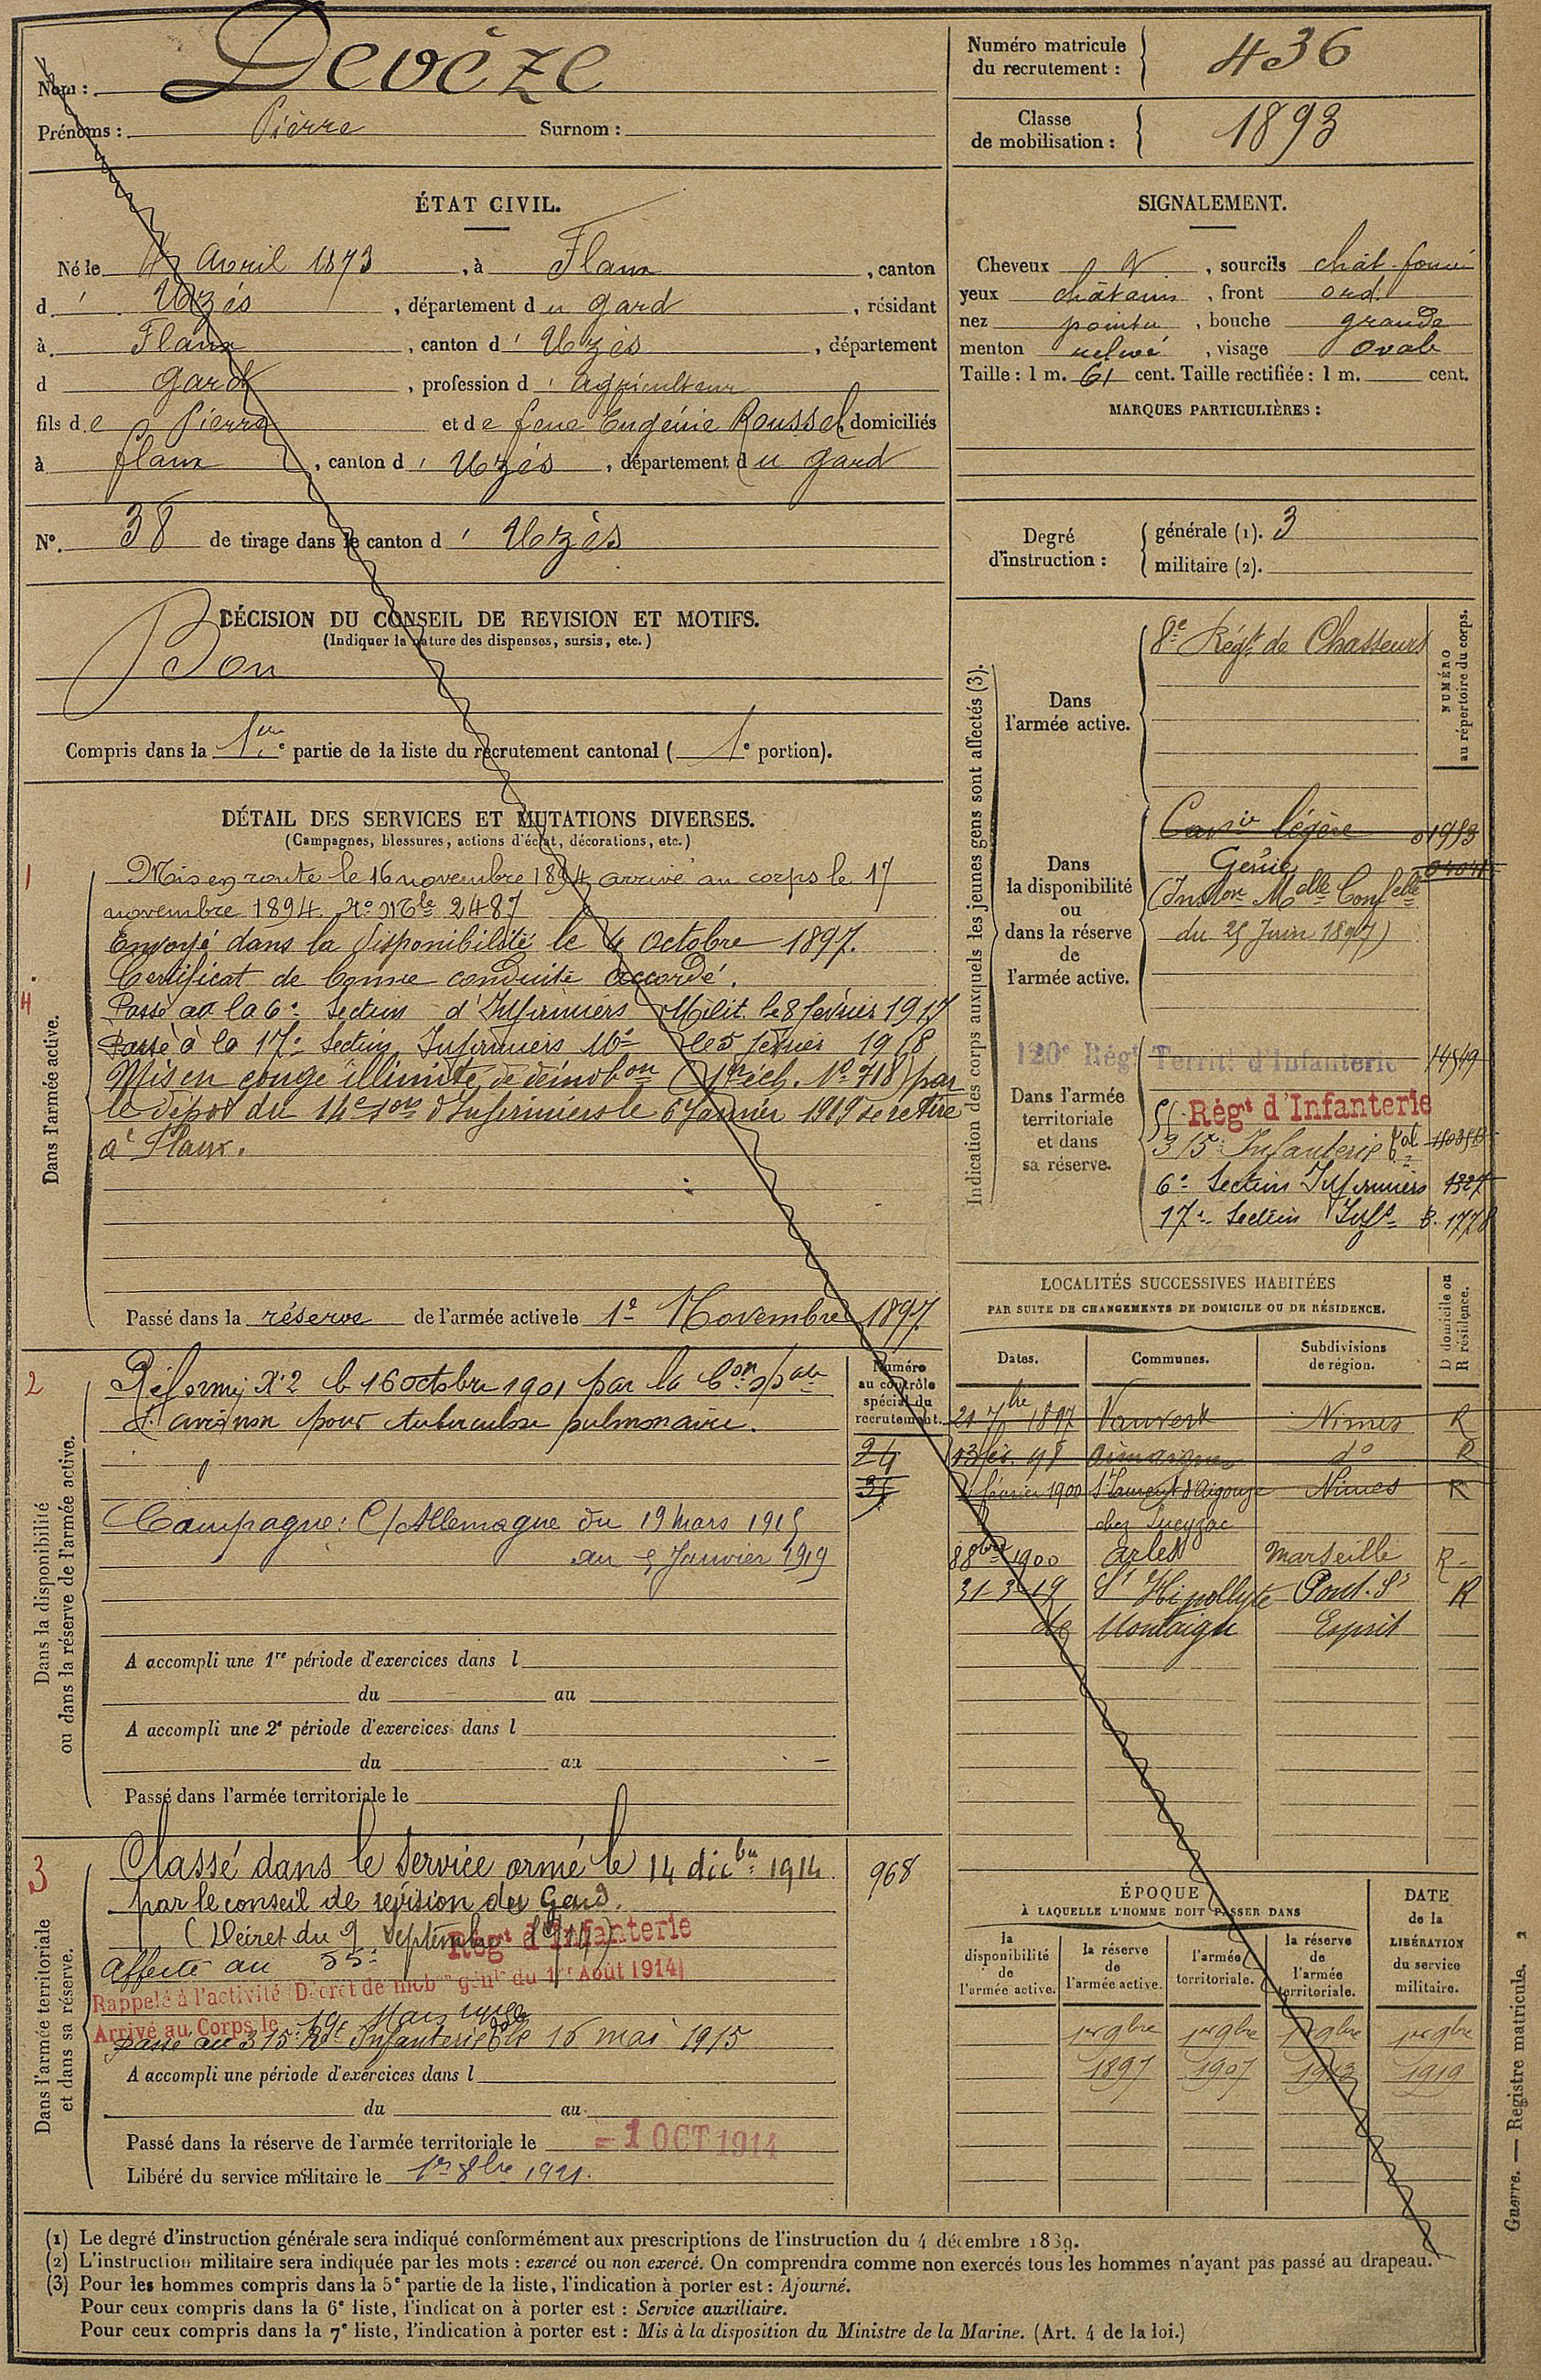 Nom : Devèze
Prénoms : Pierre Surnom :
Numéro matricule du recrutement : 436
Classe de mobilisation : 1893
ÉTAT CIVIL.
Né le 4 Avril 1873, à Flaux, canton
d' Uzés, département du gard, résidant
à Flaux, canton d' Uzès, département
d gard, profession d' agriculteur
fils de Pierre et de feue Eugénie Roussel, domiciliés
à flaux, canton d' Uzés, département du gard
N°. 38 de tirage dans le canton d' Uzès
SIGNALEMENT.
Cheveux N, sourcils chât. foncé
yeux châtains, front ord.
nez pointu, bouche grande
menton relevé, visage Ovale
Taille : 1 m. 61 cent. Taille rectifiée : 1 m. cent.
MARQUES PARTICULIÈRES :
Degré d'instruction : générale (1). 3
militaire (2).
DÉCISION DU CONSEIL DE REVISION ET MOTIFS.
(Indiquer la nature des dispenses, sursis, etc.)
Bon
Compris dans la 1ère partie de la liste du recrutement cantonal ( 1e portion).
DÉTAIL DES SERVICES ET MUTATIONS DIVERSES.
(Campagnes, blessures, actions d'éclat, décorations, etc.)
Dans l'armée active.
1
Mis en route le 16 novembre 1894, arrivé au corps le 17
novembre 1894. No Mle 2487
Envoyé dans la disponibilité le 4 Octobre 1897.
Certificat de bonne conduite accordé.
4
Passé à la 6e Section d'Infirmiers Milit. le 8 février 1917
Passé à la 17e Section Infirmiers Mre le 5 février 1918
Mis en congé illimité de démobon (1er éch. No 718) par
le dépôt du 14e son d'Infirmiers le 6 Janvier 1919 se retire
à Flaux.
Passé dans la réserve de l'armée active le 1er Novembre 1897
Indication des corps auxquels les jeunes gens sont affectés (3).
NUMÉRO au répertoire du corps.
Dans l'armée active.
8e Régt de Chasseurs
Dans la disponibilité ou dans la réserve de l'armée active.
Cavie légère 01953
Génie
(Inston Melle Confelle
du 25 Juin 1897)
Dans l'armée territoriale et dans sa réserve.
120e Régt Territ. d'Infanterie 14519
55 Régt d'Infanterie
315e Infanterie
6e Section Infirmiers 1327
17e Section Infrs B. 1778
LOCALITÉS SUCCESSIVES HABITÉES
PAR SUITE DE CHANGEMENTS DE DOMICILE OU DE RÉSIDENCE.
Dates. Communes. Subdivisions de région. D domicile ou R résidence.
21 7bre 1897 Vauvert Nimes R
13 fév. 98 Aimargues do R
février 1900 St Laurent d'Aigouze Nimes R
8 8bre 1900 Arles Marseille R
31-3-19 St Hipollyte Pont-St R
de Montaigu Esprit
Dans la disponibilité ou dans la réserve de l'armée active.
2
Réformé No 2 le 16 octobre 1901 par la Con spale
d'avignon pour tuberculose pulmonaire.
Campagne : C/Allemagne du 19 Mars 1915
au 5 Janvier 1919
Numéro au contrôle spécial du recrutement.
24
35
A accompli une 1re période d'exercices dans l
du au
A accompli une 2e période d'exercices dans l
du au
Passé dans l'armée territoriale le
Dans l'armée territoriale et dans sa réserve.
3
Classé dans le Service armé le 14 décbre 1914 968
par le conseil de révision du Gard.
(Décret du 9 Septembre 1914)
Affecté au 55e Régt d'Infanterie
Rappelé à l'activité (Décret de mobon génle du 1er Août 1914)
Arrivé au Corps le 19 Mars 1915
Passé au 315e Rt Infanterie le 16 mai 1915
A accompli une période d'exercices dans l
du au
Passé dans la réserve de l'armée territoriale le - 1 OCT 1914
Libéré du service militaire le 1er 8bre 1921.
ÉPOQUE
À LAQUELLE L'HOMME DOIT PASSER DANS
DATE de la LIBÉRATION du service militaire.
la disponibilité de l'armée active. la réserve de l'armée active. l'armée territoriale. la réserve de l'armée territoriale.
1er 9bre 1er 9bre 1er 9bre 1er 9bre
1897 1907 1913 1919
(1) Le degré d'instruction générale sera indiqué conformément aux prescriptions de l'instruction du 4 décembre 1889.
(2) L'instruction militaire sera indiquée par les mots : exercé ou non exercé. On comprendra comme non exercés tous les hommes n'ayant pas passé au drapeau.
(3) Pour les hommes compris dans la 5e partie de la liste, l'indication à porter est : Ajourné.
Pour ceux compris dans la 6e liste, l'indication à porter est : Service auxiliaire.
Pour ceux compris dans la 7e liste, l'indication à porter est : Mis à la disposition du Ministre de la Marine. (Art. 4 de la loi.)
Guerre. — Registre matricule. 2